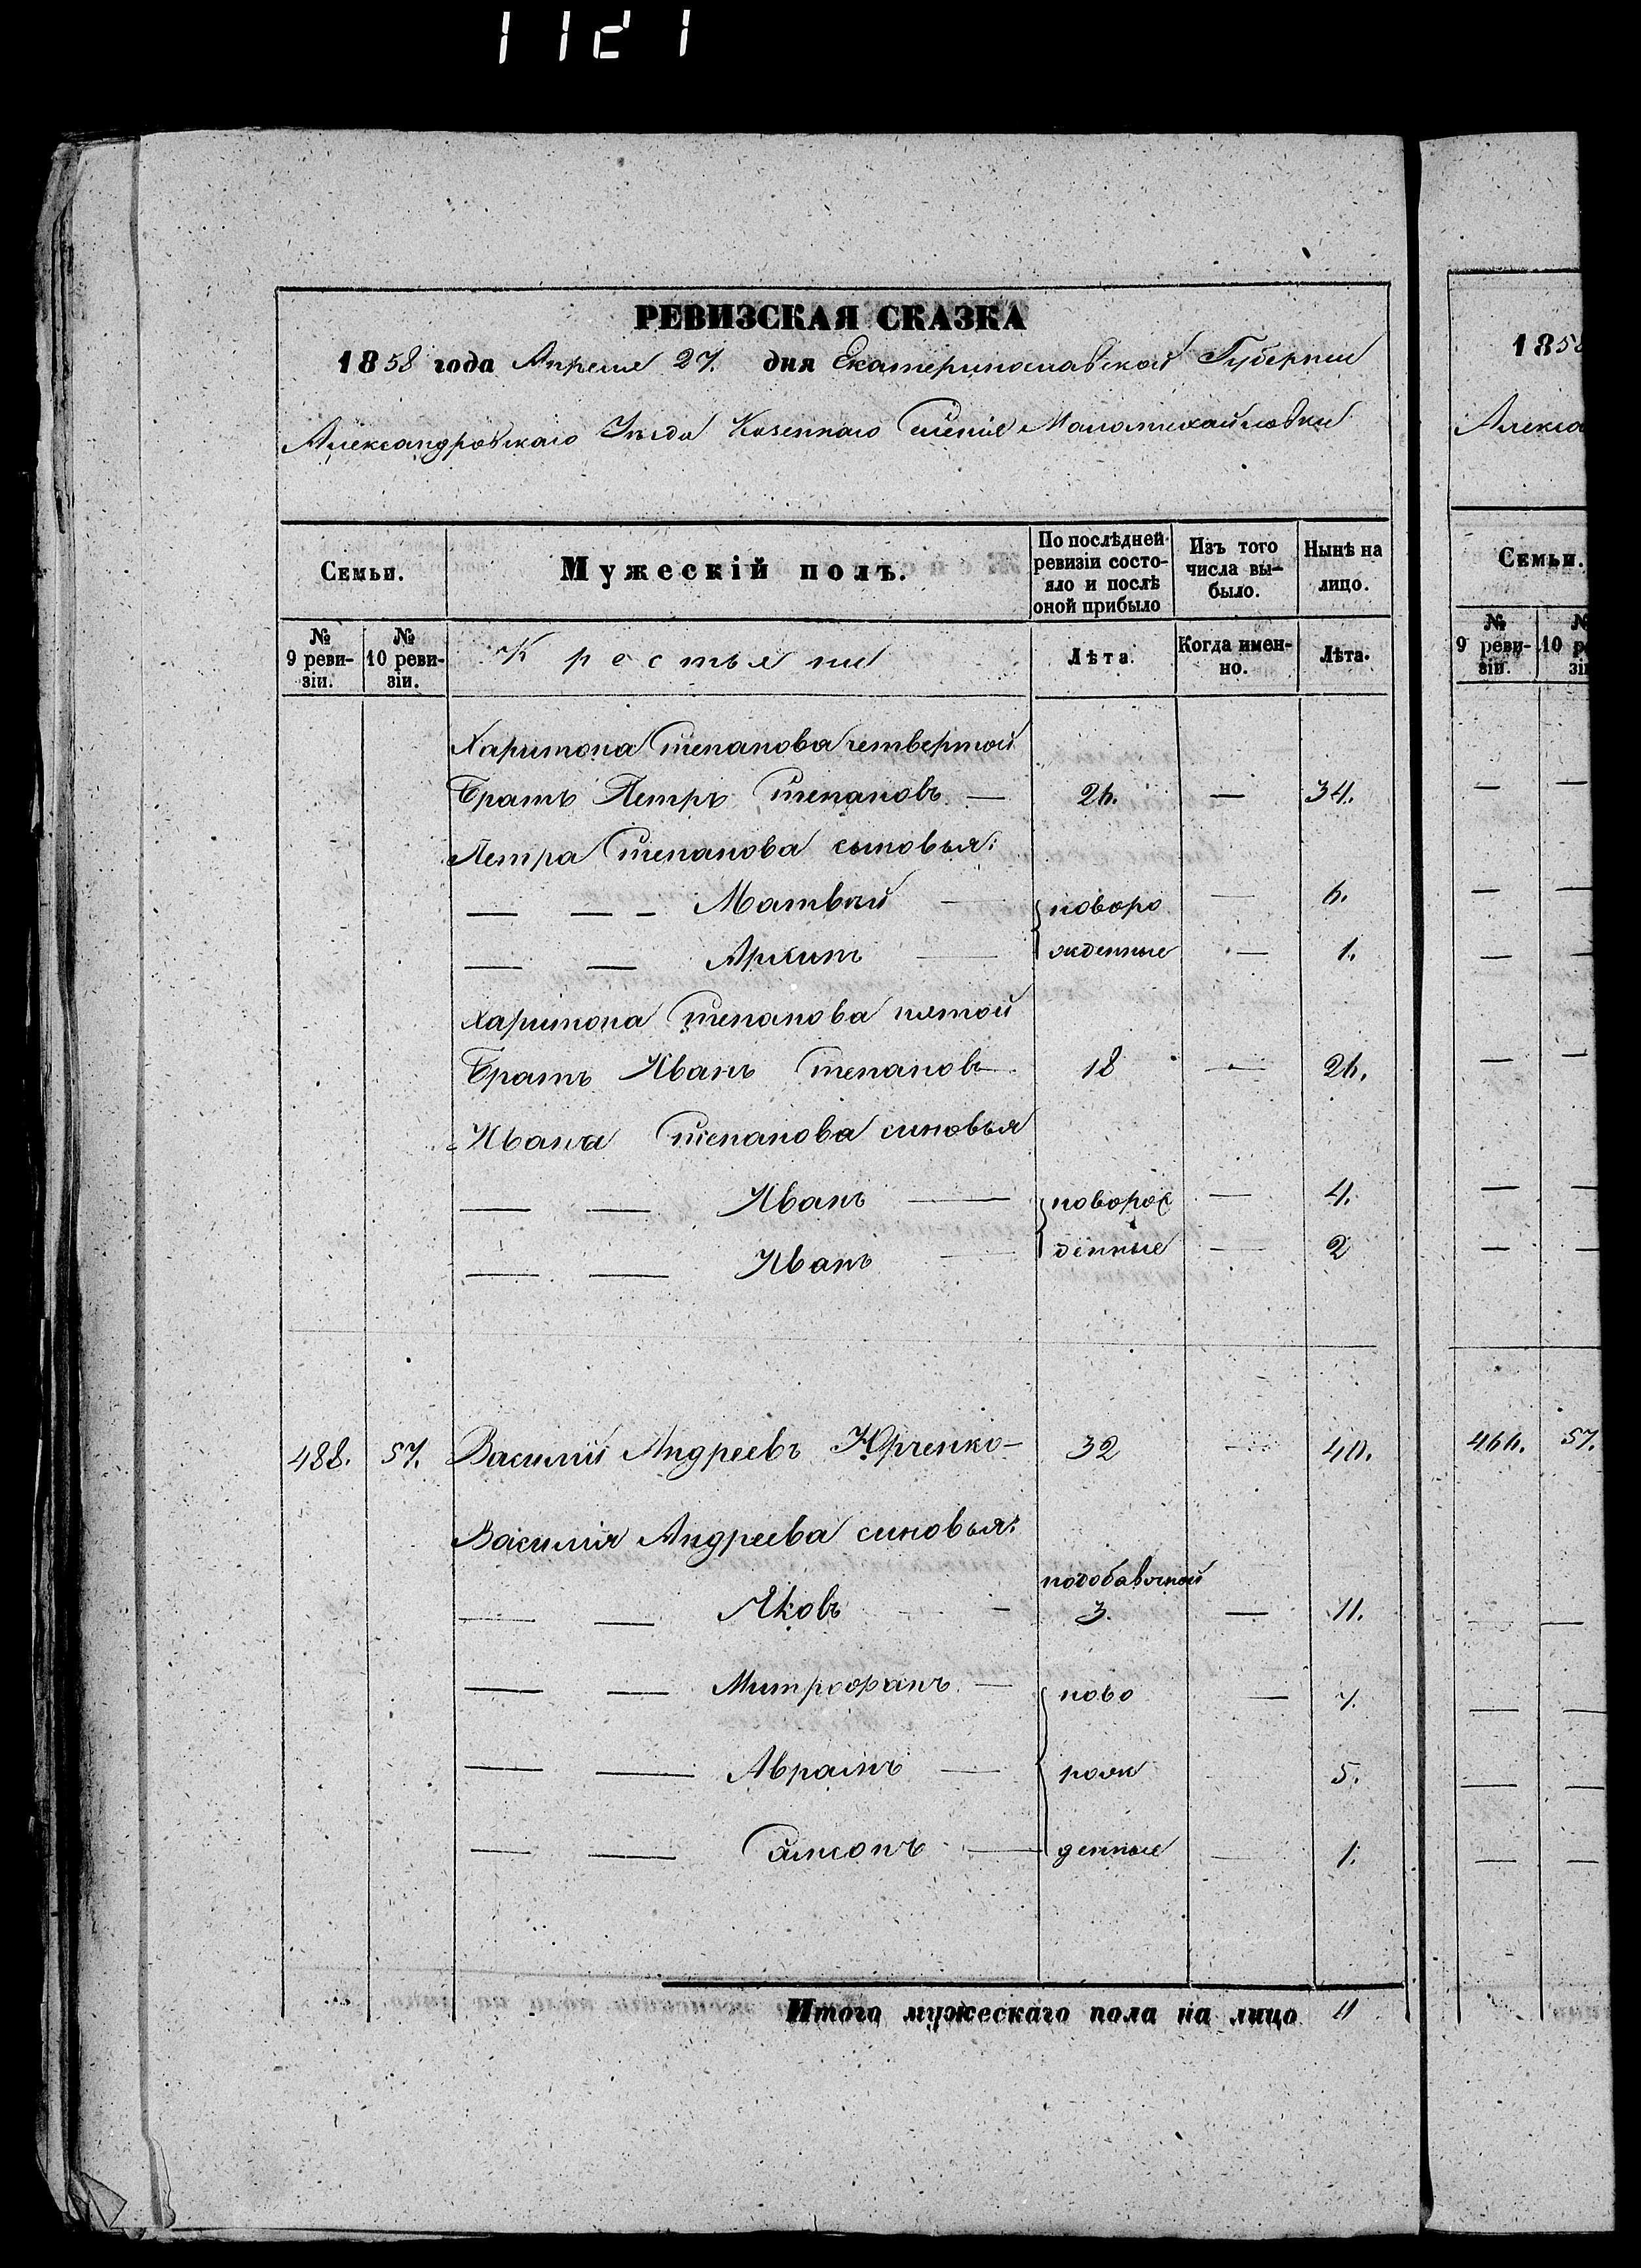 1121
РЕВИЗСКАЯ СКАЗКА
1858 года Апреля 27. дня Екатеринославской Губерніи
Александровскаго Уезда Казеннаго Селенія Маломихайловки
Семьи. Мужескій полъ. По послѣдней ревизіи состояло и послѣ оной прибыло Изъ того числа выбыло. Нынѣ на лицо.
№ 9 ревизіи. № 10 ревизіи. Крестьяне Лѣта. Когда именно. Лѣта.
Харитона Степанова четвертой
Братъ Петръ Степановъ — 26. — 34.
Петра Степанова сыновья:
— — — Матвѣй — новоро — 6.
— — Архипъ — жденные — 1.
Харитона Степанова пятой
Братъ Иванъ Степановъ — 18 — 26.
Ивана Степанова синовья
— — Иванъ — новорож — 4.
— — Иванъ — денные — 2
488. 57. Василій Андреевъ Юрченко — 32 — 40.
Василія Андреева синовья:
— — Яковъ — подобавочной 3. — 11.
— — Митрофанъ — ново — 7.
— — Аврамъ — рож 5.
— — Самсонъ — денные — 1.
Итого мужескаго пола на лицо 11
1858
Алекса
Семьи.
№ 9 ревизіи. 10
466. 57.